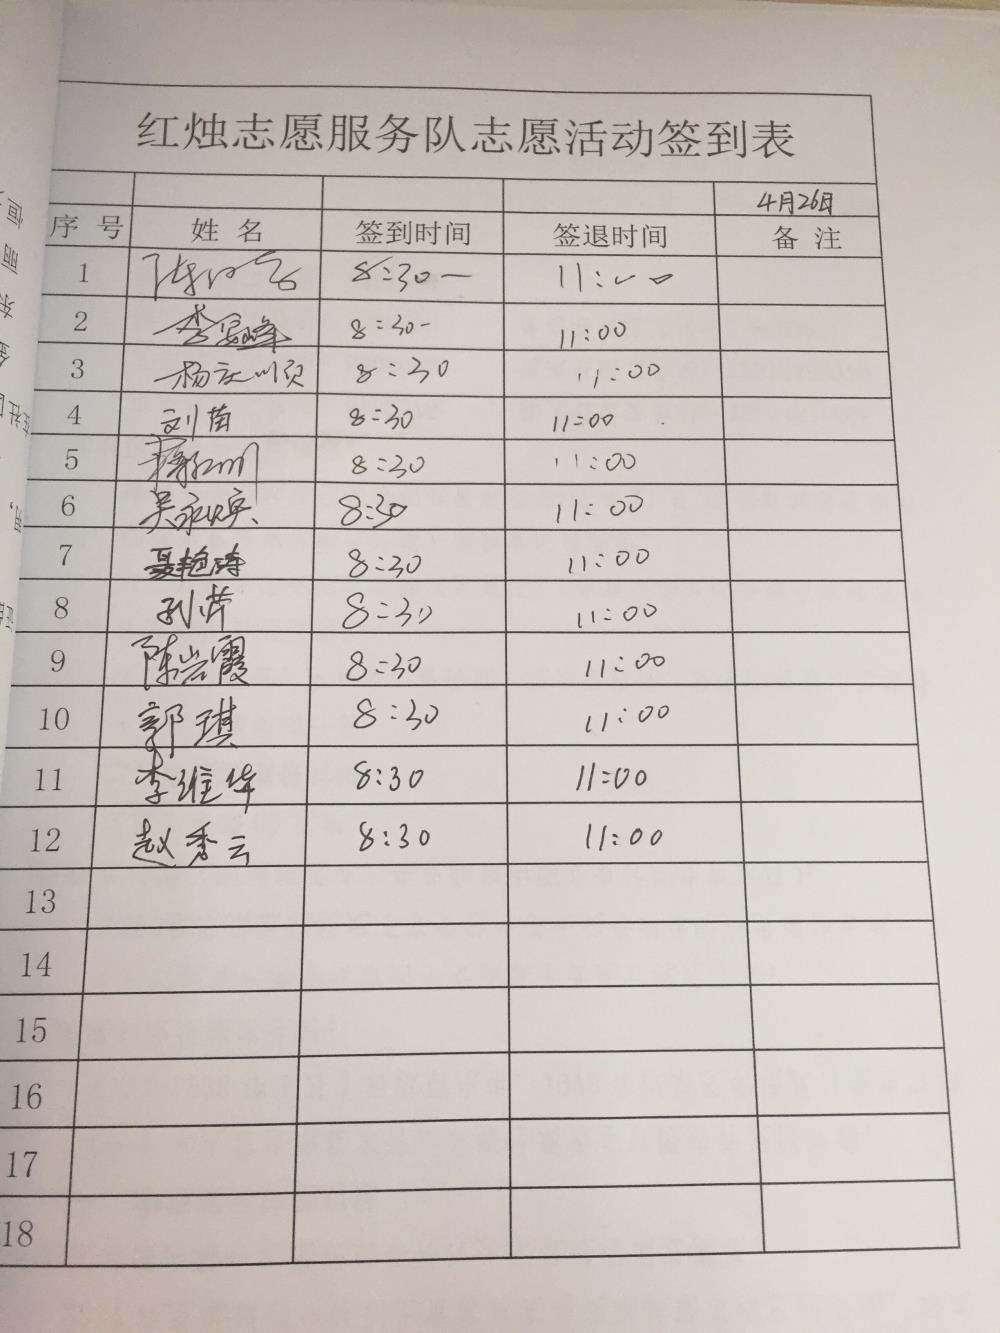 红烛志愿服务队志愿活动签到表
4月26日
序 号 姓 名 签到时间 签退时间 备 注
1 8:30 11:00
2 李 峰 8:30 11:00
3 杨 顺 8:30 11:00
4 刘苗 8:30 11:00
5 8:30 11:00
6 吴永焕 8:30 11:00
7 聂艳涛 8:30 11:00
8 孙萍 8:30 11:00
9 陈岩霞 8:30 11:00
10 郭琪 8:30 11:00
11 李维华 8:30 11:00
12 赵秀云 8:30 11:00
13
14
15
16
17
18